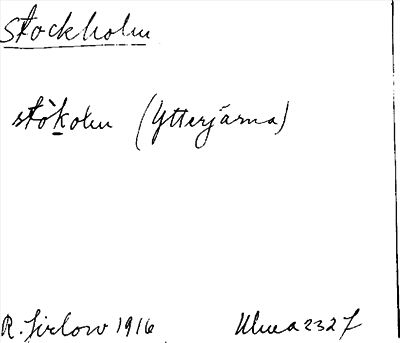 Stockholm
stòkolm (Ytterjärna)
R. Jirlow 1916 Ulma 232 7